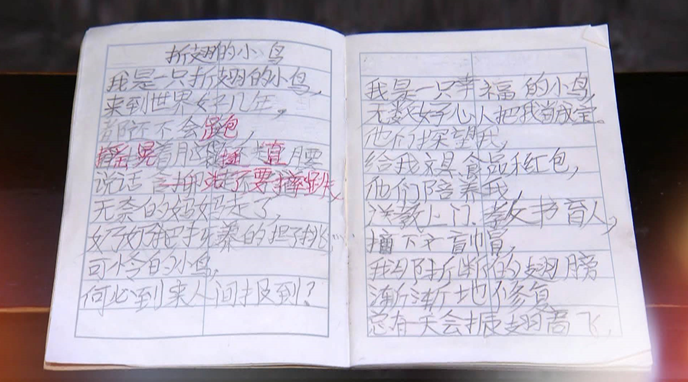 折翅的小鸟
我是一只折翅的小鸟,
来到世界好几年,
不会跑,
摇晃着脑袋挺不直腰
说话含糊不要摔跤
无奈的妈妈走了,
奶奶把抚养的担子挑,
可怜的小鸟,
何必到来人间报到?
我是一只幸福的小鸟,
无数好心人把我当成宝。
他们探望我,
给我食品和红包,
他们陪养我,
送教上门、教书育人,
摘下文盲帽,
我的折断的翅膀
渐渐地修复
总有一天会振翅高飞.